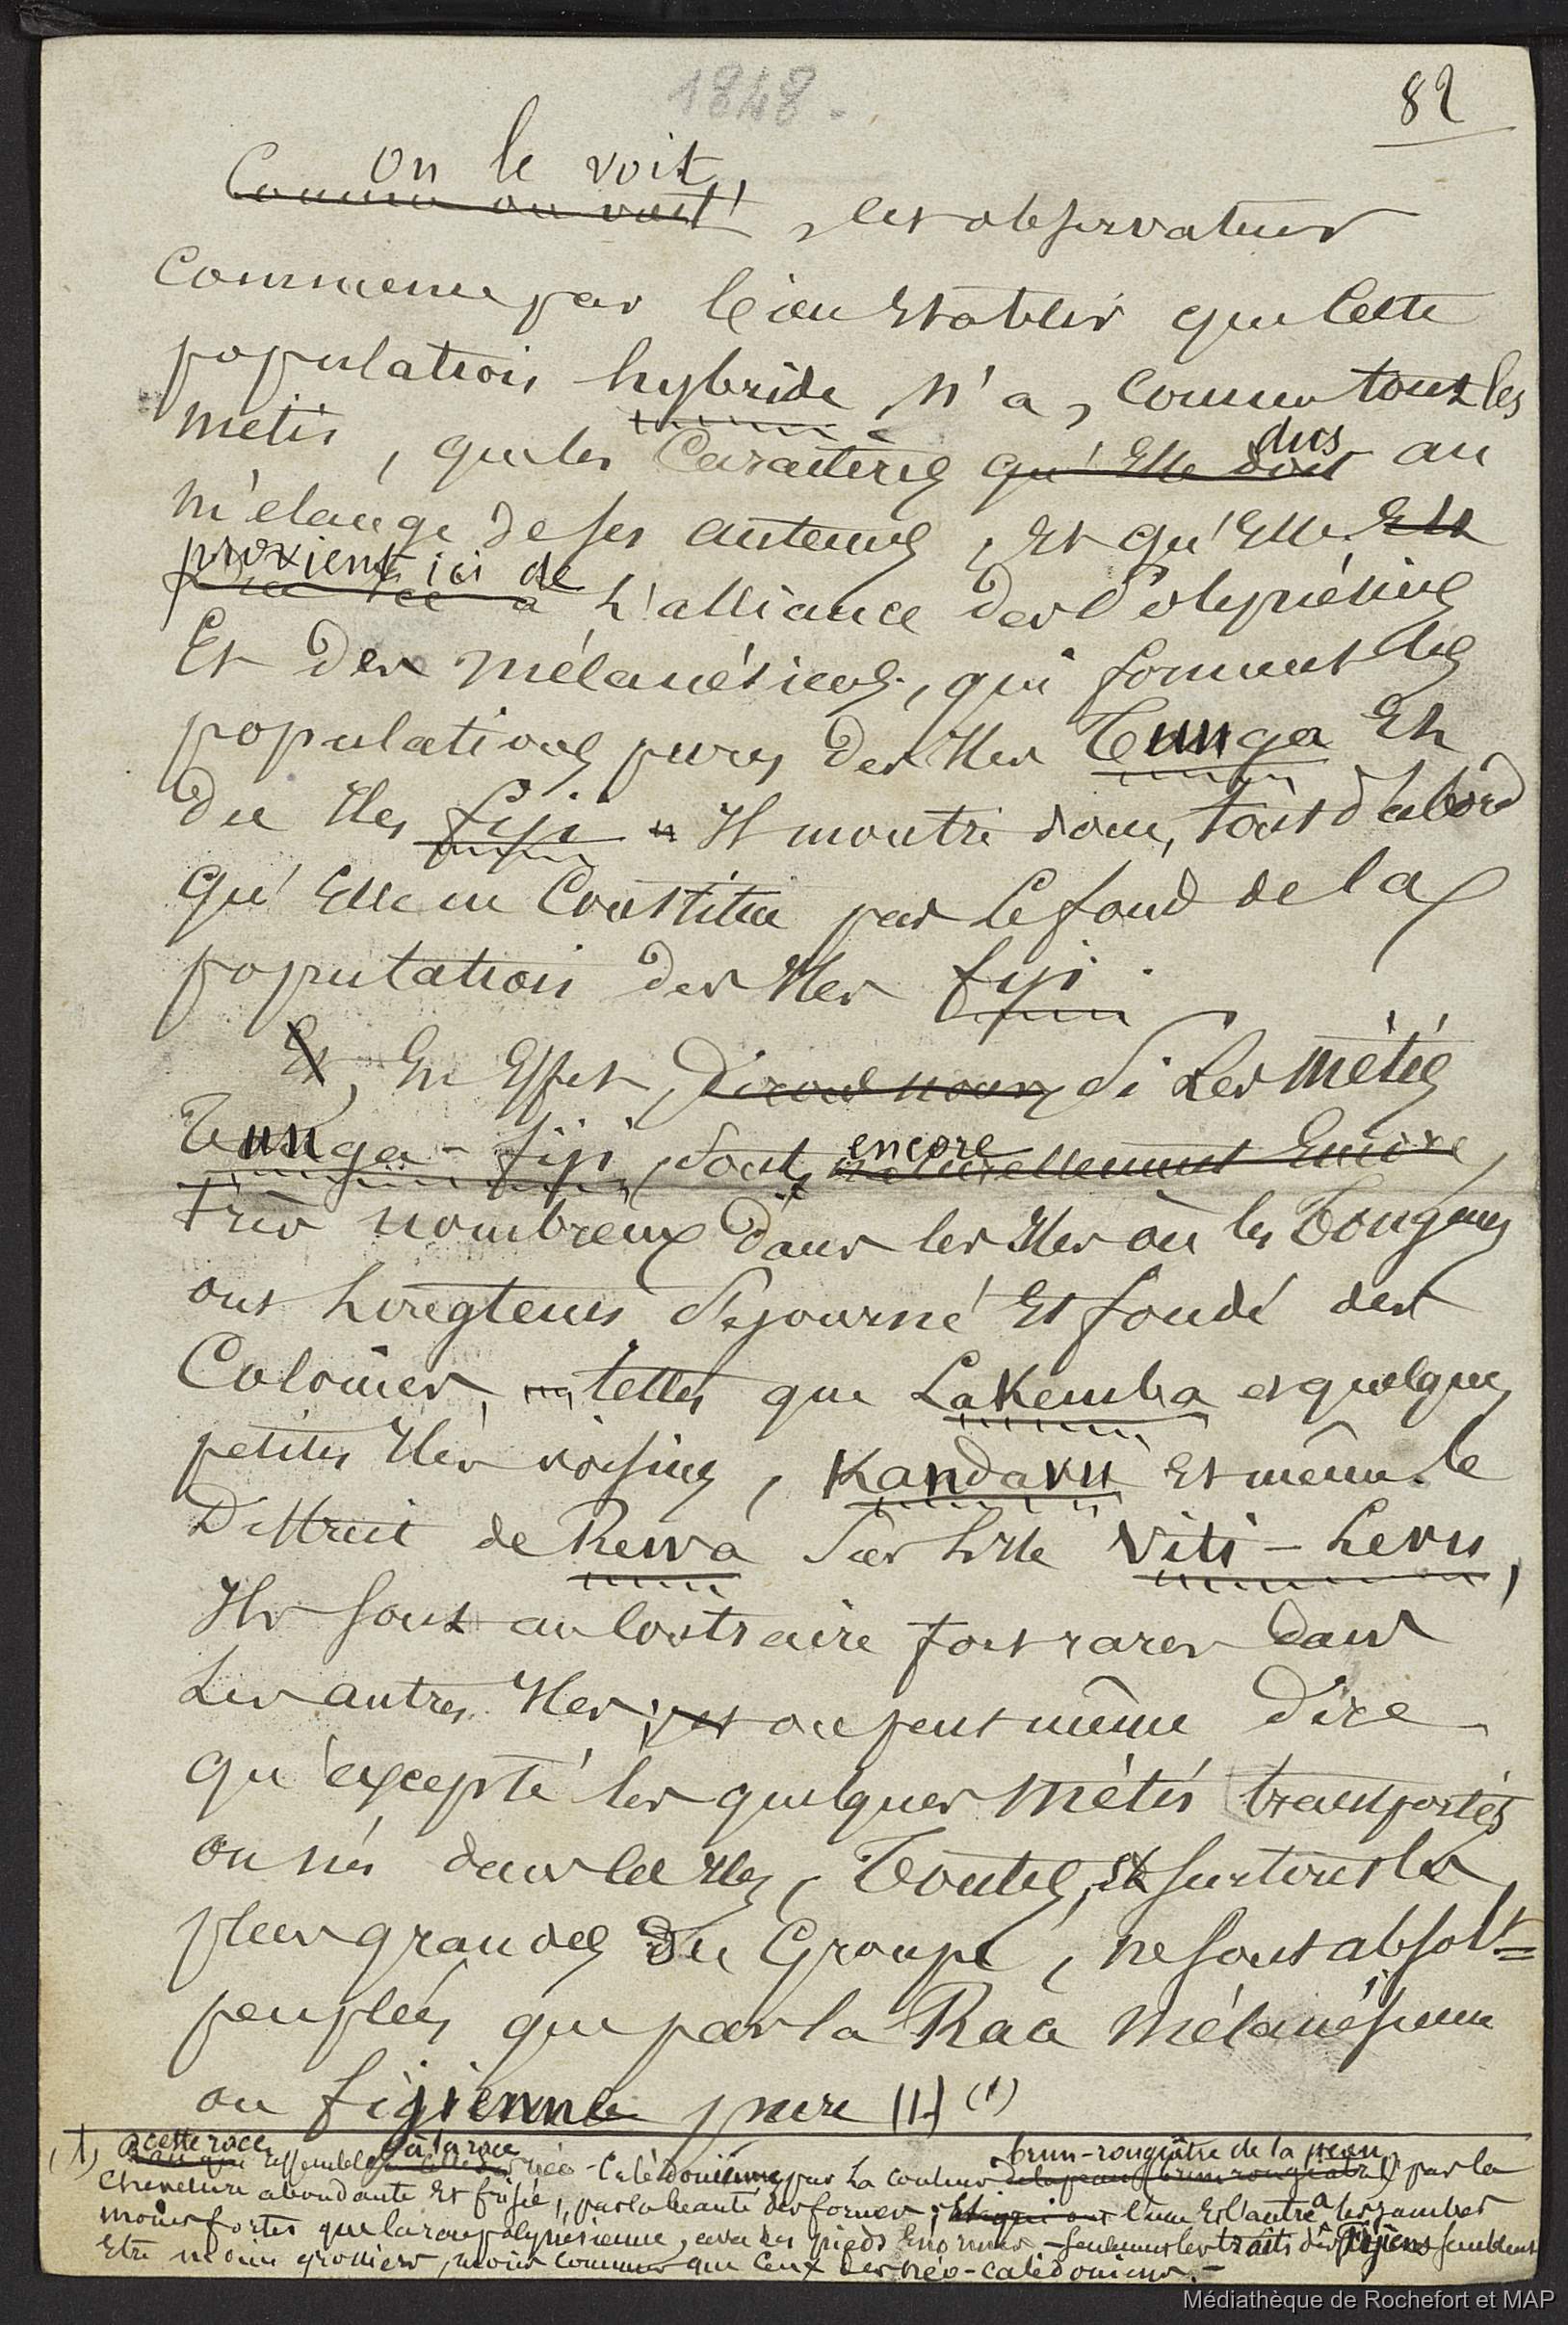 1848.
82
On le voit,
Comme on voit, cet observateur
commence par bien établir que cette
population hybride n'a, comme tous les
métis, que les caractères qu'elle doit dus au
mélange de ses auteurs, et qu'elle est
provient ici de
à l'alliance des Polynésiens
et des Mélanésiens, qui forment les
populations pures des Iles Tunga et
des Iles fiji - Il montre donc, tout d'abord
qu'elle ne constitue pas le fond de la
population des Iles fiji.
Et, En effet, disons nous, si les métis
Tunga-fiji, sont, encore naturellement encore,
très nombreux dans les Iles où les Tongans
ont longtems séjourné et fondé des
Colonies, telles que Lakemba et quelques
petites Iles voisines, Kandavu et même le
District de Rewa sur l'Ile Viti-Levu,
Ils sont au contraire fort rares dans
les autres Iles; et on peut même dire
qu'excepté les quelques métis transportés
ou nés dans ces Iles, toutes, et surtout les
plus grandes du Groupe, ne sont absolt
peuplées que par la Race Mélanésienne
ou figienne pure (1) (1)
(1) cette race ressemble à la race néo-Calédonienne par la couleur brun-rougiâtre de la peau de la peau (brun rougiâtre) par la
chevelure abondante et frisée, par la beauté des formes; et qui ont l'une et l'autre a les jambes
moins fortes que la race polynésienne, avec des pieds énormes - seulement les traits des fijiens semblent
être moins grossiers, moins communs que ceux des néo-calédoniens. -
Médiathèque de Rochefort et MAP